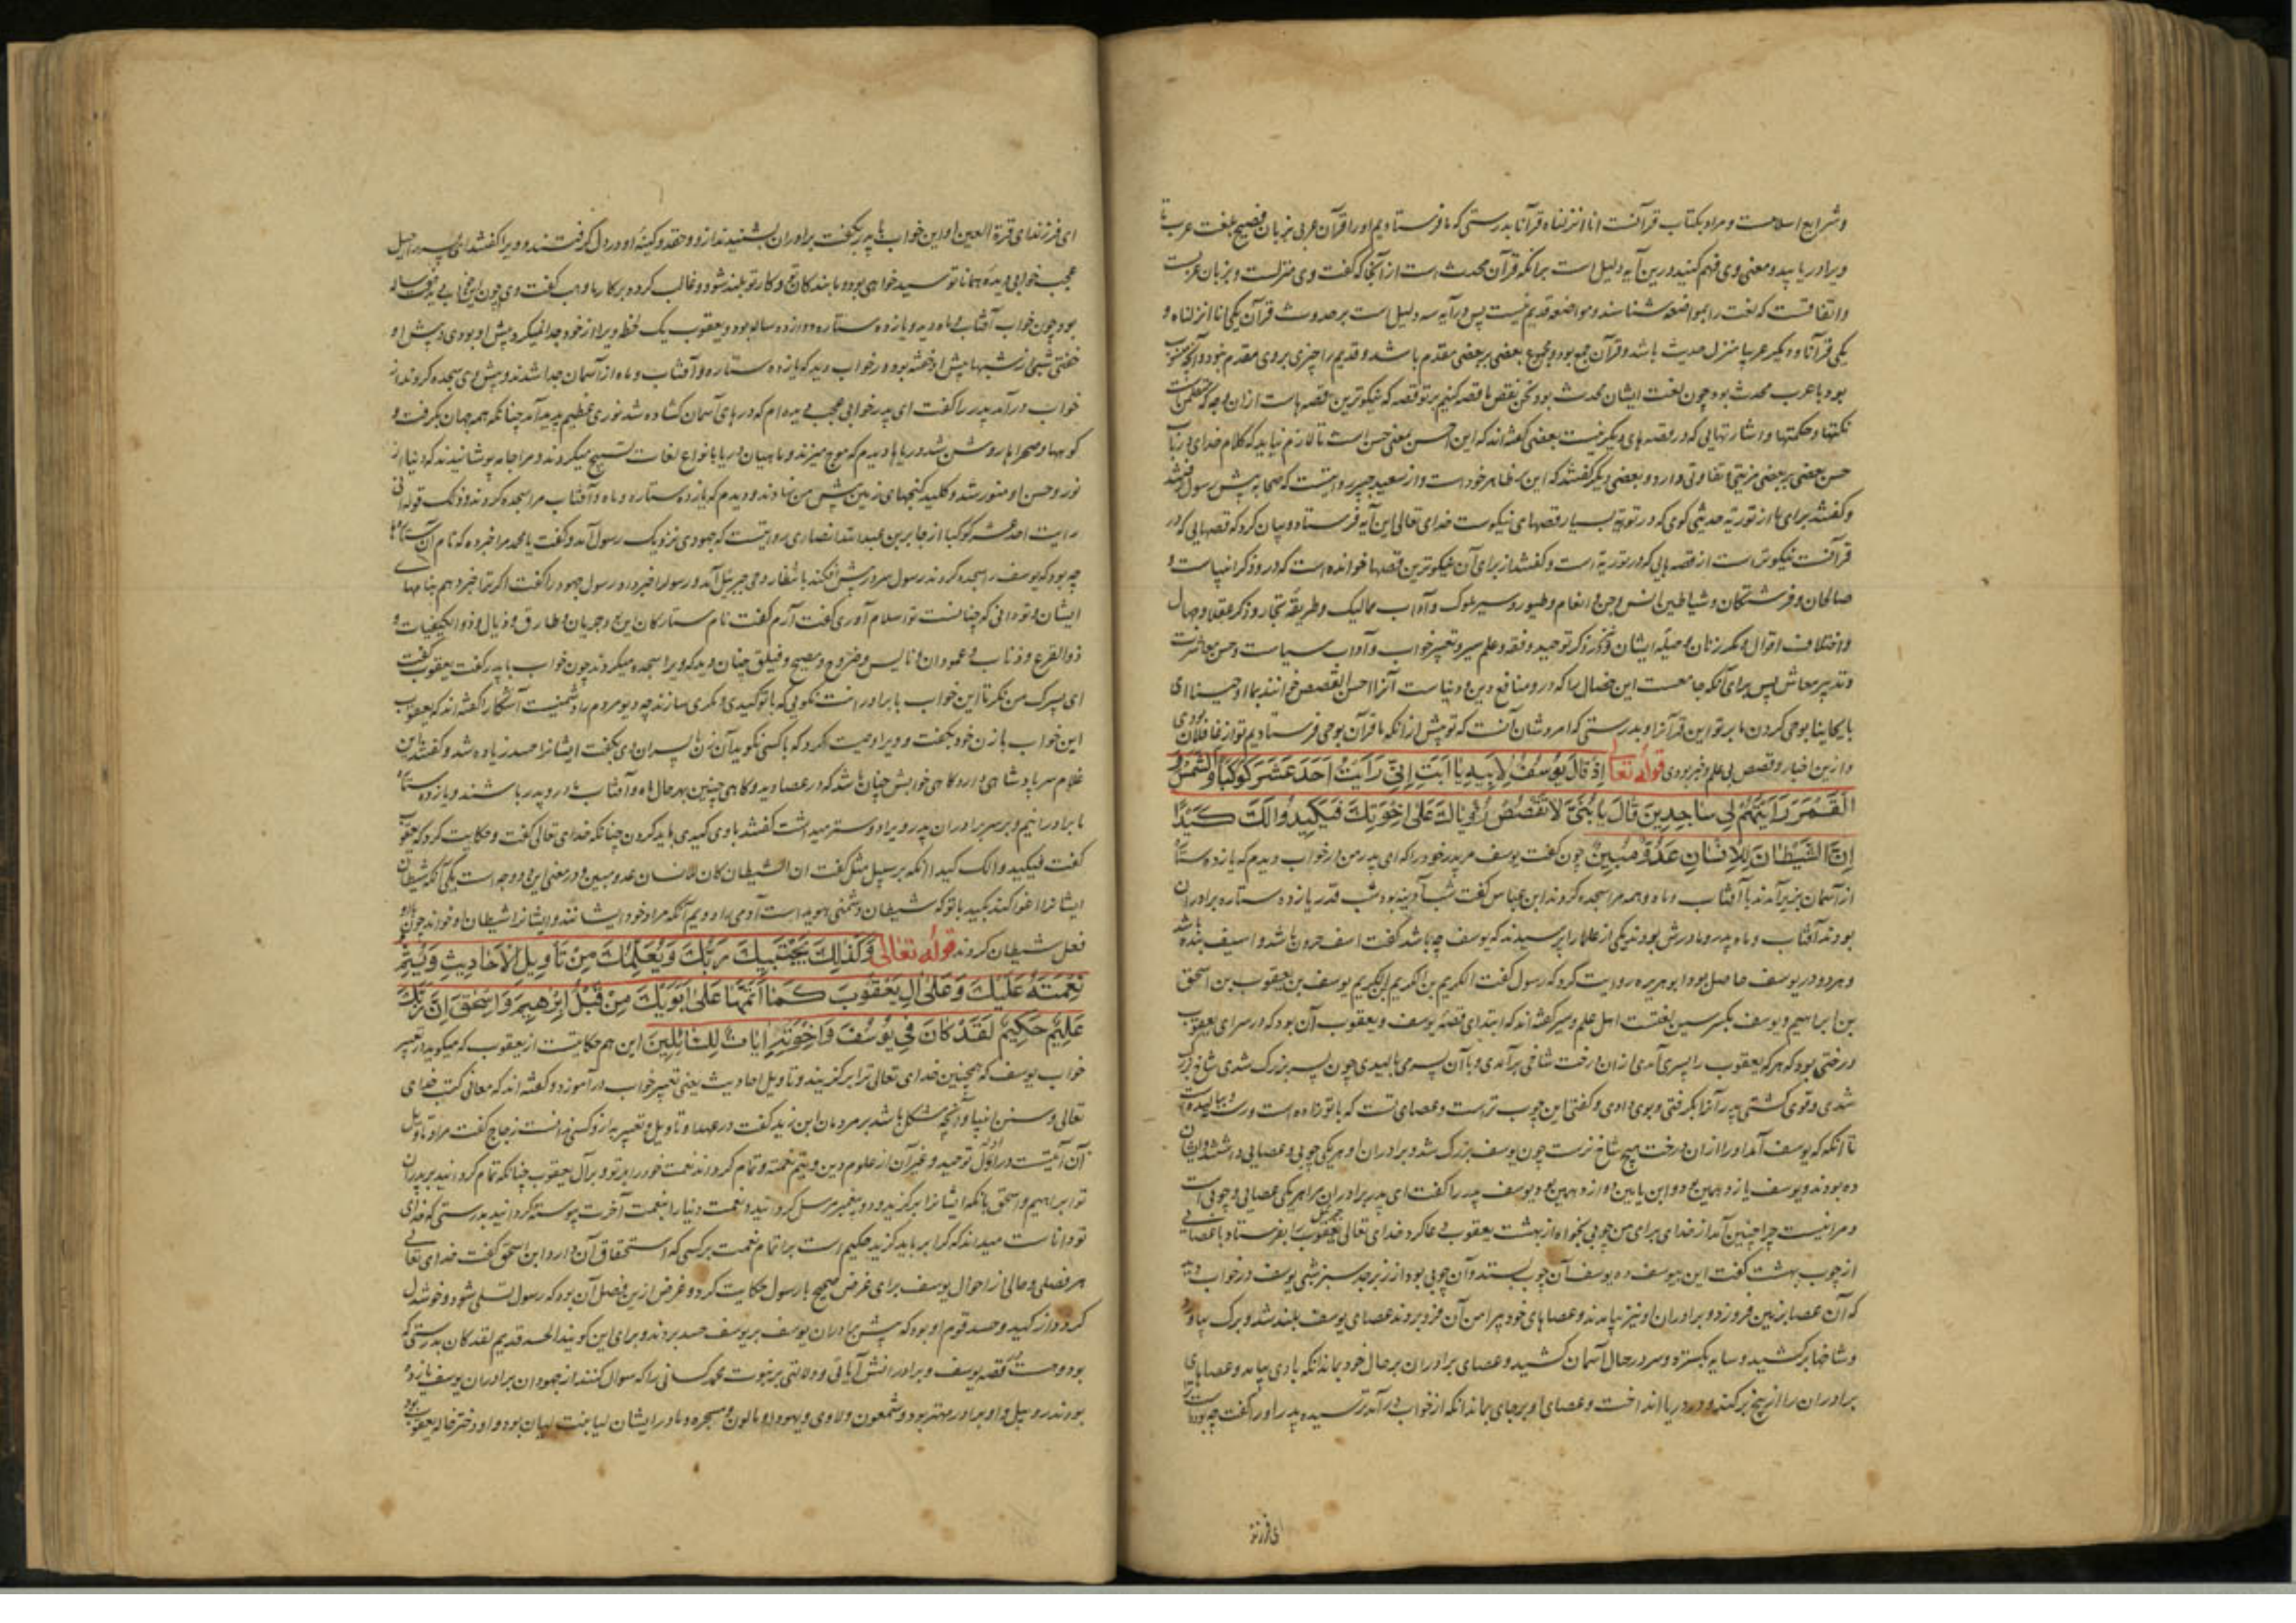 و شرایع اسلامست و مراد بکتاب قرآنست انا انزلناه قرآنا بدرستی که ما فرستادیم او را قرآن عربی بزبان فصیح بلغت عرب تا
ویرا دریابید و معنی وی فهم کنید و درین آیه دلیل است برانکه قرآن محدث است از آنجا که گفت وی منزلست و بزبان عربست
و اتفاقست که لغت را بمواضعه شناسند و مواضعه قدیم نیست پس در آیه سه دلیل است بر حدوث قرآن یکی انا انزلناه و
یکی قرآنا و دیگر عربیا منزل حدیث باشد و قرآن جمع بود و مجموع بعضی بر بعضی مقدم باشد و قدیم را چیزی بر وی مقدم نبود و آنچه منسوب
بود با عرب محدث بود چون لغت ایشان محدث بود نحن نقص ما قصه کنیم بر تو قصه که نیکوترین قصه هاست ازان وجه که متضمن
نکتها و حکمتها و اشارتهایی که در قصه های دیگر نیست بعضی گفته اند که این احسن بمعنی حسن است تا لازم نیاید که کلام خدای در باب
حسن بعضی بر بعضی مزیتی و تفاوتی دارد و بعضی دیگر گفتند که این بر ظاهر خود است و از سعید جبیر روایتست که صحابه پیش رسول
و گفتند برای ما از توریة حدیثی کوی که در توریة بسیار قصهای نیکوست خدای تعالی این آیه فرستاد و بیان کرد که قصهایی که در
قرآنست نیکوتر است از قصه هایی که در توریة است و گفتند از برای آن نیکوترین قصها خوانده است که در و ذکر انبیاست و
صالحان و فرشتگان و شیاطین و انس و جن و انعام و طیور و سیر ملوک و آداب ممالیک و طریقه تجار و ذکر عقلا و جهال
و اختلاف اقوال و مکر زنان و حیله ایشان و ذکر توحید و فقه و علم سیر و تعبیر خواب و آداب سیاست و حسن معاشرت
و تدبیر معاش پس برای آنکه جامعست این خصال را که در و منافع دین و دنیاست آنرا احسن القصص خوانند بما اوحینا ای
بایحاینا بوحی کردن ما بر تو این قرآن را و بدرستی که امر و شان آنست که تو پیش از انکه ما قرآن بوحی فرستادیم تو از غافلان بودی
و ازین اخبار و قصص بی علم و خبر بودی قوله تعا اِذ قالَ یُوسُفُ لِاَبیهِ یا اَبَتِ اِنّی رَاَیتُ اَحَدَ عَشَرَ کَوکَبًا وَالشَّمسَ وَ
القَمَرَ رَاَیتُهُم لی ساجِدینَ قالَ یا بُنَیَّ لا تَقصُص رُؤیاکَ عَلی اِخوَتِکَ فَیَکیدُوا لَکَ کَیدًا
اِنَّ الشَّیطانَ لِلاِنسانِ عَدُوٌّ مُبینٌ چون گفت یوسف مر پدر خود را که ای پدر من در خواب دیدم که یازده ستاره
از آسمان بزیر آمدند با آفتاب و ماه و همه مرا سجده کردند ابن عباس گفت شب آدینه بود شب قدر یازده ستاره برادران
بودند آفتاب و ماه پدر و مادرش بودند یکی از علما را پرسیدند که یوسف چه باشد گفت اسف حزن باشد و اسیف بنده باشد
و هر دو در یوسف حاصل بود ابو هریره روایت کرد که رسول گفت الکریم بن الکریم بن الکریم یوسف بن یعقوب بن اسحق
بن ابراهیم و یوسف بکسر سین لغتست اهل علم و سیر گفته اند که ابتدای قصه یوسف و یعقوب آن بود که در سرای یعقوب
درختی بود که هر که یعقوب را پسری آمدی ازان درخت شاخی برآمدی و با آن پسر می بالیدی چون پسر بزرک شدی شاخ بزرک
شدی و قوی گشتی پدر آنرا بگرفتی و بوی دادی و گفتی این چوب تراست و عصای تست که با تو زاده است و
تا انکه که یوسف آمد او را ازان درخت هیچ شاخ نرست چون یوسف بزرک شد و برادران او هر یکی چوبی و عصایی داشتند و ایشان
ده بودند و یوسف یازدهمین بود و ابن یامین دوازدهمین بود یوسف پدر را گفت ای پدر برادران مرا هر یکی عصایی و چوبی است
و مرا نیست چرا چنین آمد از خدای برای من چوبی بخواه از بهشت یعقوب دعا کرد خدای تعالی جبریل را بفرستاد با عصایی
از چوب بهشت گفت این بیوسف ده یوسف آن چوب بستد و آن چوبی بود از زبرجد سبز شبی یوسف در خواب دید
که آن عصا بزمین فرو زد و برادران او نیز بیامدند و عصاهای خود پیرامن آن فرو بردند عصای یوسف بلند شد و برک بیاورد
و شاخها برکشید و سایه بگسترد و سر در حال آسمان کشید و عصای برادران بر حال خود بماند انکه بادی بیامد و عصاهای
برادران را از بیخ برکند و در دریا انداخت و عصای او بر جای بماند انکه از خواب درآمد ترسیده پدر او را گفت چه بودست
ای فرزند
ای فرزند ای قرة العین او این خواب با پدر بگفت برادران بشنیدند ازو و حقد و کینه او در دل گرفتند و ویرا گفتند ای پسر راحیل
عجب خوابی دیده همانا تو سید خواهی بود و ما بندکان تو و کار تو بلند شود و غالب کردد بر کار ما وهب گفت وی چون این خواب بدید هفت ساله
بود چون خواب آفتاب و ماه دید و یازده ستاره دوازده ساله بود و یعقوب یک لحظه ویرا از خود جدا نمیکرد پیش او بودی و پیش او
خفتی شبی از شبها پیش او خفته بود در خواب دید که یازده ستاره و آفتاب و ماه از آسمان جدا شدند و پیش وی سجده کردند از
خواب درآمد پدر را گفت ای پدر خوابی عجب دیده ام که درهای آسمان کشاده شد نوری عظیم پدید آمد چنانکه همه جهان بگرفت و
کوهها و صحراها روشن شد و دریاها دیدم که موج میزند و ماهیان دریا بانواع لغات تسبیح میکردند و مرا جامه پوشانیدند که دنیا از
نور و حسن او منور شد و کلید گنجهای زمین پیش من نهادند و دیدم که یازده ستاره و ماه و آفتاب مرا سجده کردند و ذلک قوله انی
رایت احد عشر کوکبا از جابر بن عبدالله انصاری روایتست که جهودی نزدیک رسول آمد و گفت یا محمد مرا خبر ده که نام آن ستارها
چه بود که یوسف را سجده کردند رسول سر در پیش افکند بانتظار وحی جبریل آمد و رسول را خبر داد رسول جهود را گفت اگر ترا خبر دهم بنامهای
ایشان و تو دانی که چنانست تو اسلام آوری گفت آرم گفت نام ستارکان این بود جریان و طارق و ذیال و ذو الکیفیات و
ذو القرع و وثاب و عمودان و قابس و ضروح و مصبح و فیلق چنان دید که ویرا سجده میکردند چون خواب با پدر گفت یعقوب گفت
ای پسرک من نگر تا این خواب با برادرانت نکویی که با تو کیدی و مکری سازند چه دیو مردم را دشمنیست آشکارا گفته اند که یعقوب
این خواب با زن خود بگفت و ویرا وصیت کرد که با کسی نگوید آن زن با پسران وی بگفت ایشانرا حسد زیاده شد و گفتند این
غلام سر پادشاهی دارد کاهی خوابش چنان باشد که در عصا دید و کاهی چنین بهر حال ماه و آفتاب مادر و پدر باشند و یازده ستاره
ما برادرانیم و بر سر برادران پدر ویرا دوستر میداشت گفتند با وی کیدی باید کردن چنانکه خدای تعالی گفت و حکایت کرد که یعقوب
گفت فیکیدوا لک کیدا انکه بر سبیل مثل گفت ان الشیطان کان للانسان عدو مبین و در معنی این دو وجه است یکی آنکه شیطان
ایشانرا اغوا کند بکید با تو که شیطان دشمنی هویداست آدمی را دویم آنکه مراد خود ایشانند و ایشانرا شیطان خواند چون
فعل شیطان کردند قوله تعالی وَکَذلِکَ یَجتَبیکَ رَبُّکَ وَیُعَلِّمُکَ مِن تَأویلِ الاَحادیثِ وَیُتِمُّ
نِعمَتَهُ عَلَیکَ وَعَلی الِ یَعقُوبَ کَما اَتَمَّها عَلی اَبَوَیکَ مِن قَبلُ اِبرهیمَ وَاِسحقَ اِنَّ رَبَّکَ
عَلیمٌ حَکیمٌ لَقَد کانَ فی یُوسُفَ وَاِخوَتِهِ ایاتٌ لِلسّائِلینَ این هم حکایتست از یعقوب که میکوید در تعبیر
خواب یوسف که همچنین خدای تعالی ترا برکزیند و تاویل احادیث یعنی تعبیر خواب درآموزد و گفته اند که معانی کتب خدای
تعالی و سنن انبیا و آنچه مشکل باشد بر مردمان ابن زید گفت در علم و تاویل و تعبیر به از و کسی ندانست زجاج گفت مراد تاویل
آن آیتست در اول توحید و غیر آن از علوم دین و یتم نعمته و تمام کرداند نعمت خود را بر تو و بر آل یعقوب چنانکه تمام کردانید بر پدران
تو ابراهیم و اسحق بانکه ایشانرا برکزید و دو پیغمبر مرسل کردانید و نعمت دنیا را بنعمت آخرت پیوسته کردانید بدرستی که خدای
تو داناست میداند که کرا بر باید کزید حکیم است براتمام نعمت بر کسی که استحقاق آن دارد ابن اسحق گفت خدای تعالی
هر فصلی و حالی از احوال یوسف برای غرض صحیح با رسول حکایت کرد و غرض ازین فصل آن بود که رسول تسلی شود و خوشدل
کردد از کید و حسد قوم او بود که پیش برادران یوسف بر یوسف حسد بردند و برای این گویند الحسد قدیم لقد کان بدرستی که
بود و هست قصه یوسف و برادرانش آیاتی و دلالتی بر نبوت محمد کسانی را که سوال کنند از جهودان برادران یوسف یازده
بودند روبیل و او برادر مهتر بود و شمعون و لاوی و یهودا و بالون و یسجر و مادر ایشان لیا بنت لیان بود و او دختر خاله یعقوب بود